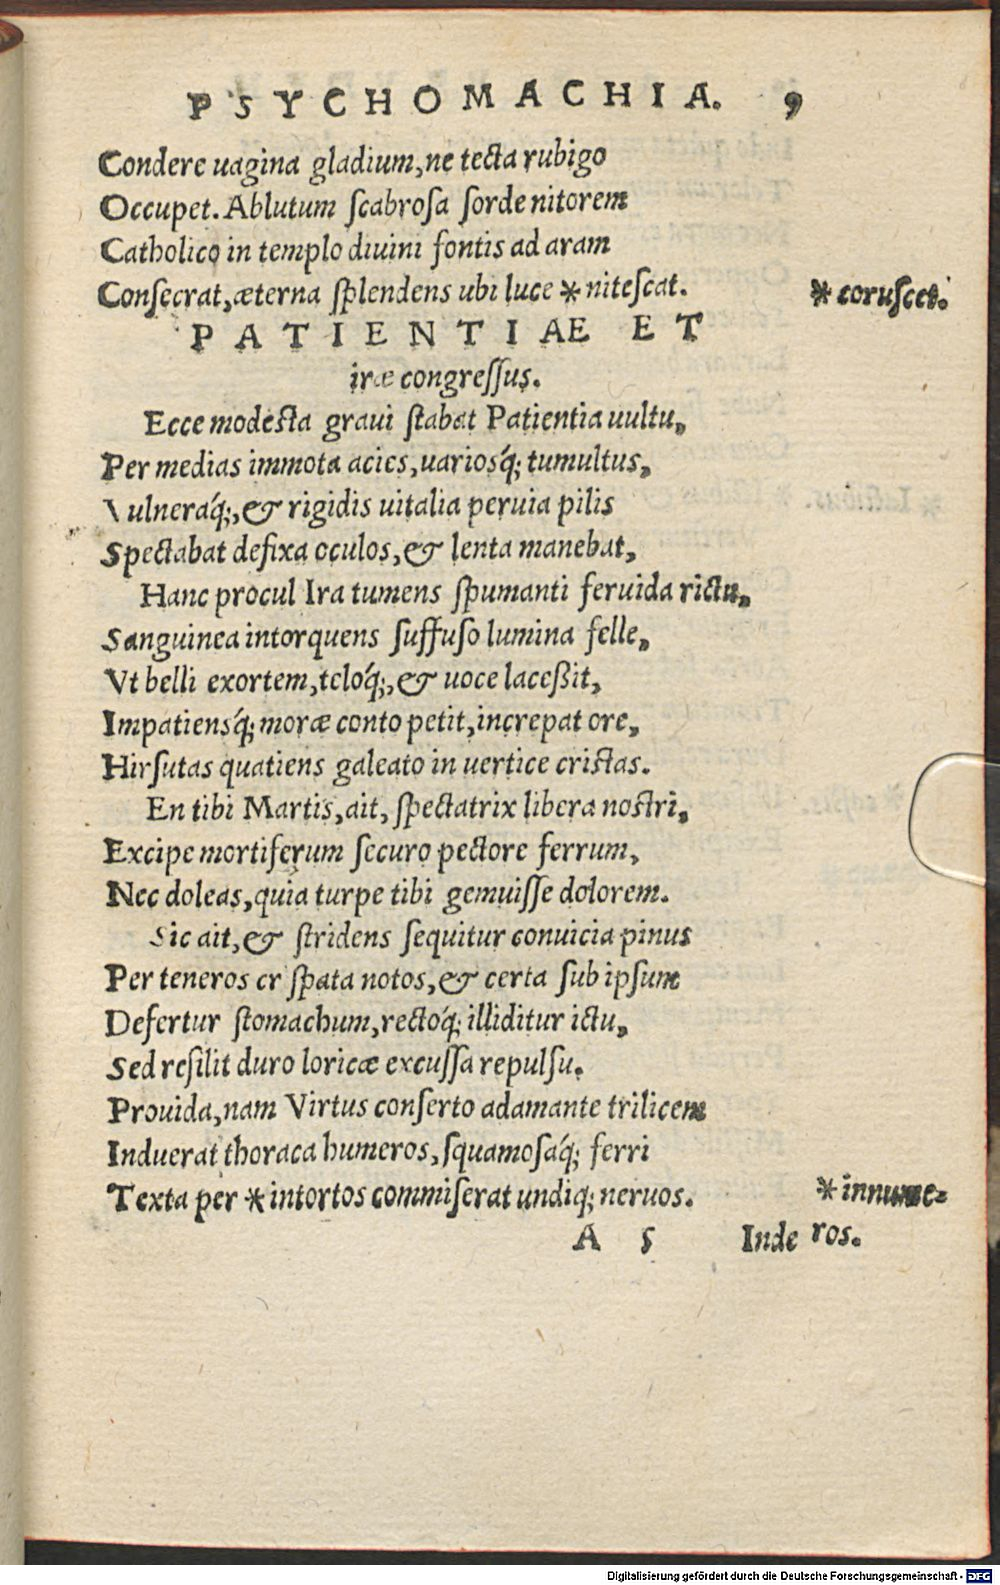 PSYCHOMACHIA. 9
Condere uagina gladium, ne tecta rubigo
Occupet. Ablutum ſcabroſa ſorde nitorem
Catholico in templo diuini fontis ad aram
Conſecrat, æterna ſplendens ubi luce * niteſcat.
* coruſcet.
PATIENTIAE ET
iræ congreſſus.
Ecce modeſta graui ſtabat Patientia uultu,
Per medias immota acies, uariosq́; tumultus,
Vulneraq́;, & rigidis uitalia peruia pilis
Spectabat defixa oculos, & lenta manebat,
Hanc procul Ira tumens ſpumanti feruida rictu,
Sanguinea intorquens ſuffuſo lumina felle,
Vt belli exortem, teloq́;, & uoce laceßit,
Impatiensq́; moræ conto petit, increpat ore,
Hirſutas quatiens galeato in uertice criſtas.
En tibi Martis, ait, ſpectatrix libera noſtri,
Excipe mortiferum ſecuro pectore ferrum,
Nec doleas, quia turpe tibi gemuiſſe dolorem.
Sic ait, & ſtridens ſequitur conuicia pinus
Per teneros cr ſpata notos, & certa ſub ipſum
Defertur ſtomachum, rectoq́; illiditur ictu,
Sed reſilit duro loricæ excuſſa repulſu.
Prouida, nam Virtus conſerto adamante trilicem
Induerat thoraca humeros, ſquamoſaq́; ferri
Texta per * intortos commiſerat undiq; neruos.
* innume-
ros.
A 5 Inde
Digitalisierung gefördert durch die Deutsche Forschungsgemeinschaft - DFG